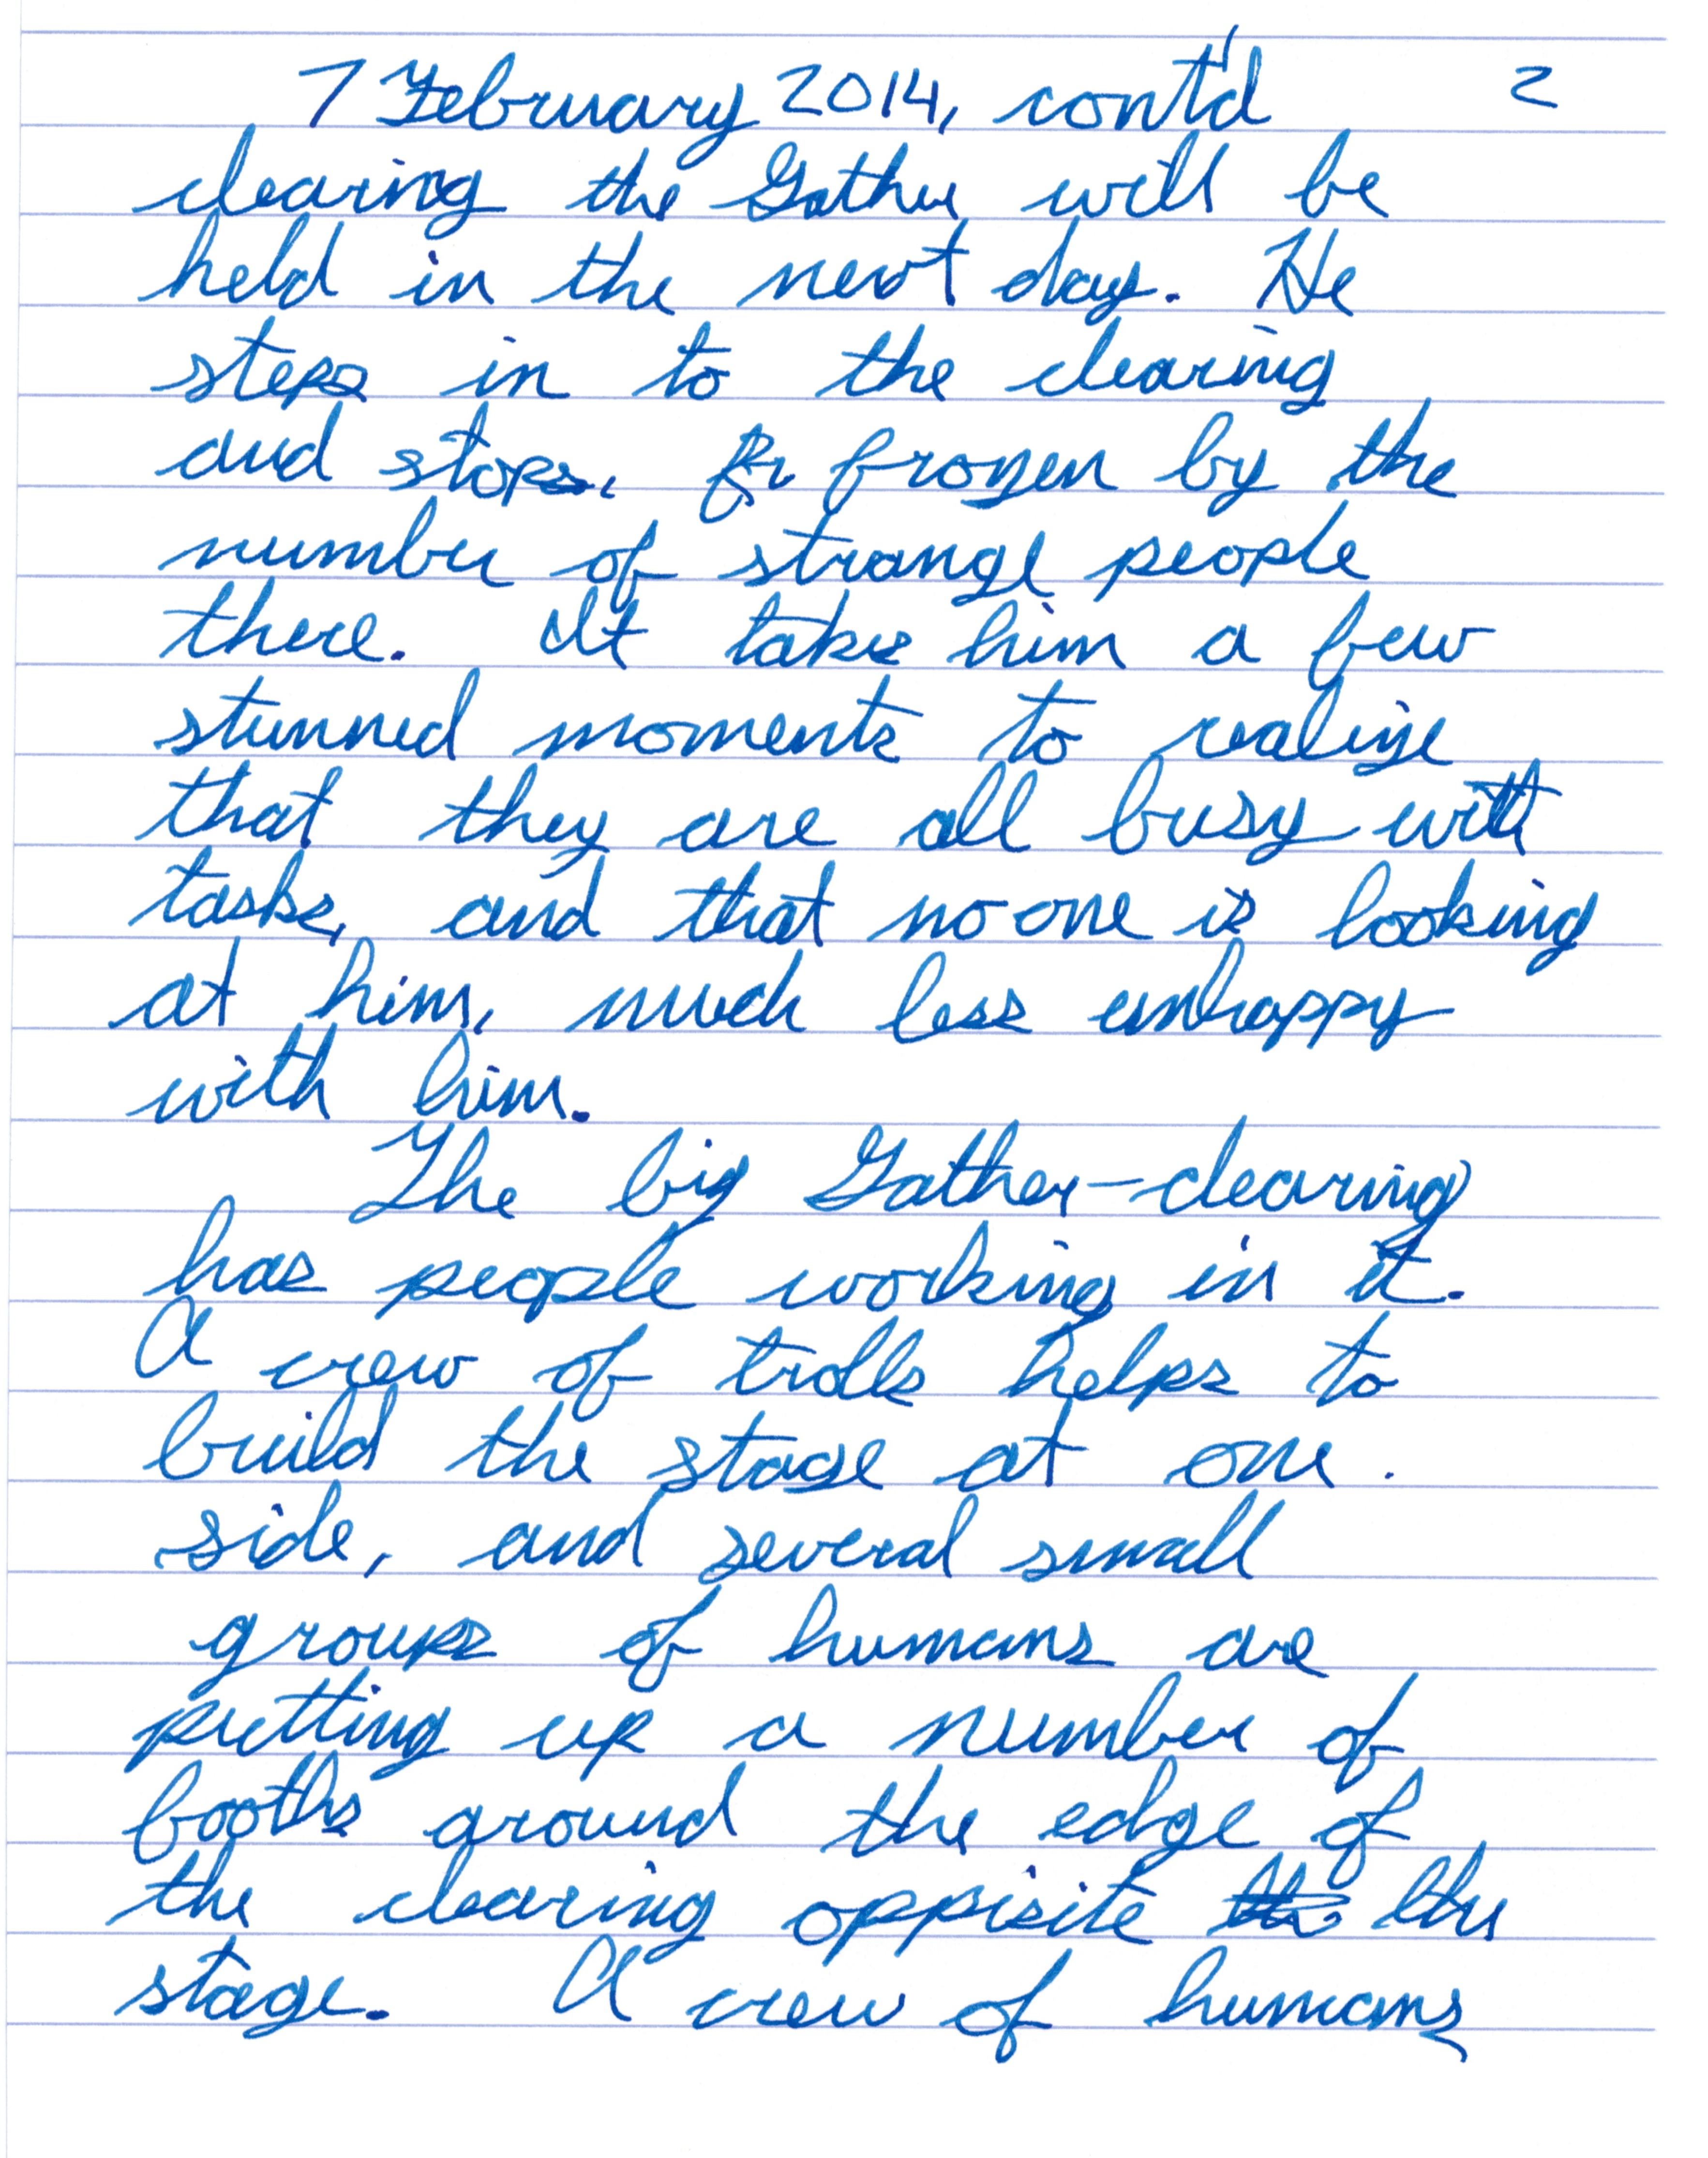 7 February 2014, cont'd 2
clearing the Gather will be
held in the next day. He
steps in to the clearing
and stops, fr frozen by the
number of strange people
there. It takes him a few
stunned moments to realize
that they are all busy with
tasks, and that no one is looking
at him, much less unhappy
with him.
The big Gather-clearing
has people working in it.
A crew of trolls helps to
build the stage at one
side, and several small
groups of humans are
putting up a number of
booths around the edge of
the clearing oppisite the the
stage. A crew of humans